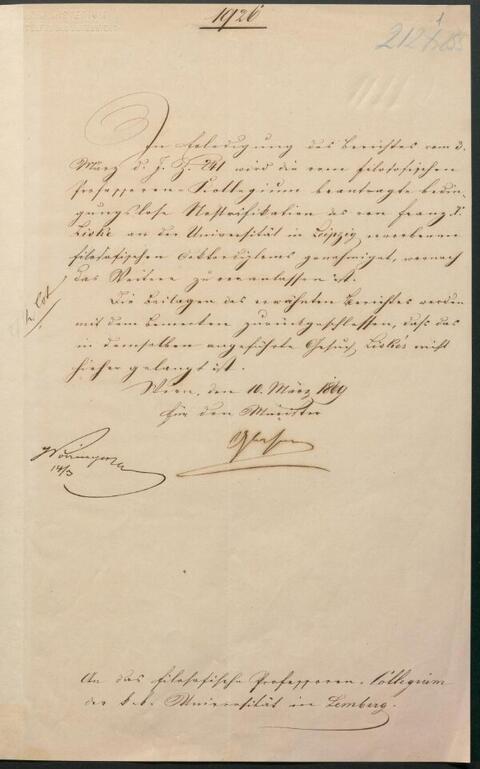 1926
In Erledigung des Berichtes vom 3.
März d. J. Z. 241 wird die vom filosofischen
Professoren-Kollegium beantragte bedin-
gungslose Nostrifikation des von Franz X.
Liske an der Universität in Leipzig erworbenen
filosofischen Doktordiploms genehmiget, wonach
das Weitere zu veranlassen ist.
Die Beilagen des erwähnten Berichtes werden
mit dem Bemerken zurückgeschlossen, daß das
in demselben angeführte Gesuch Liske's nicht
hieher gelangt ist.
Wien, den 10. März 1869
Für den Minister
14/3
An das filosofische Professoren-Collegium
der k. k. Universität in Lemberg.